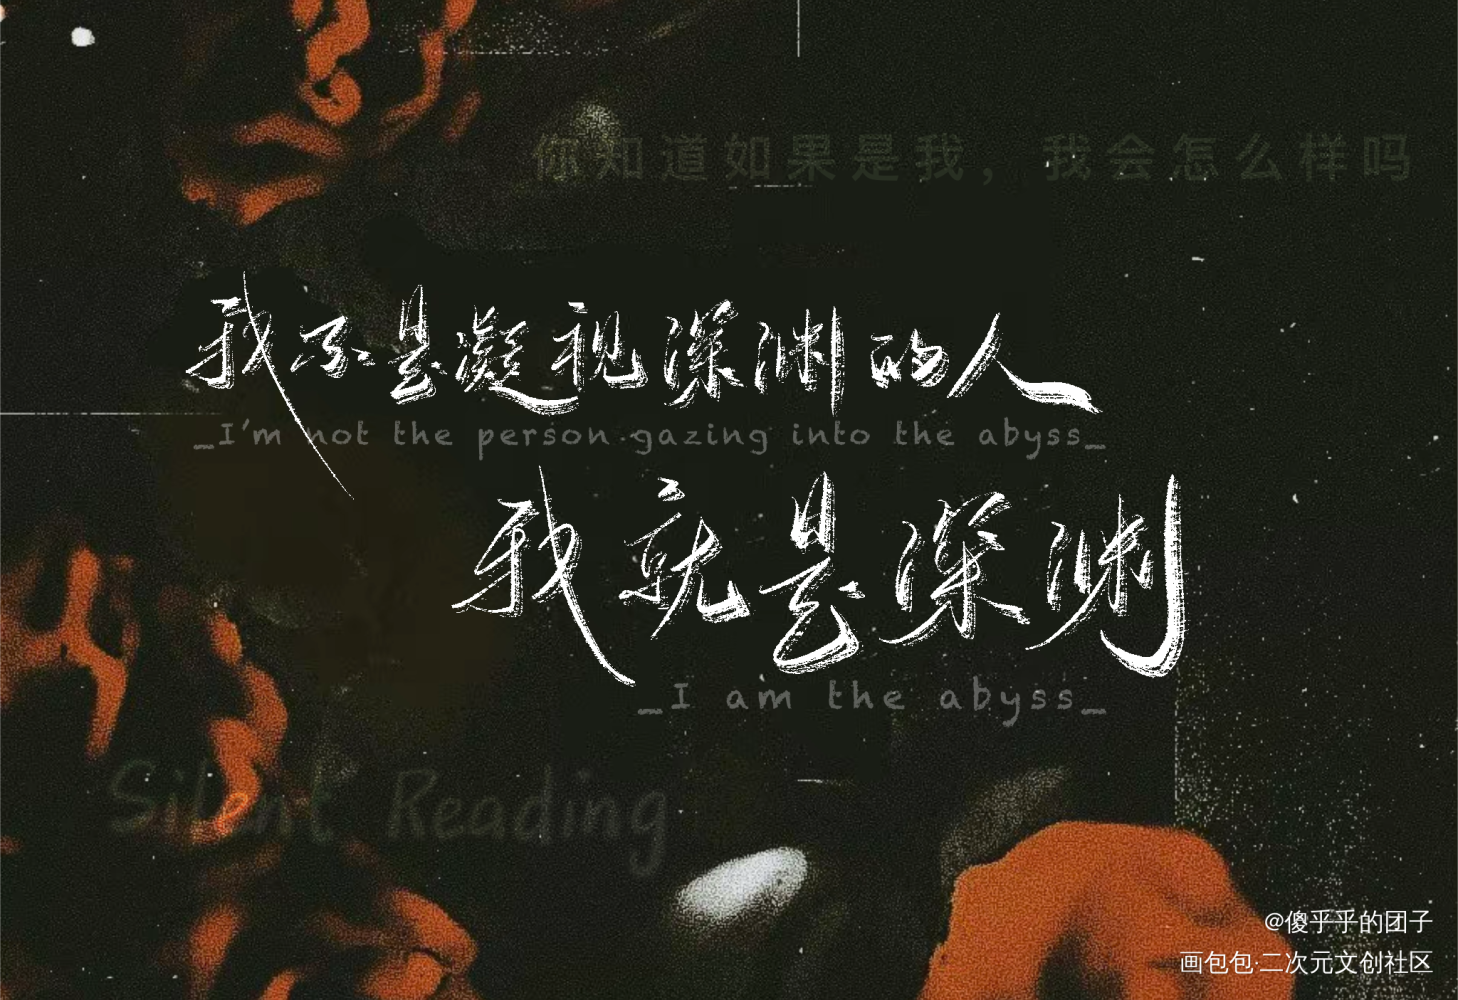 你知道如果是我，我会怎么样吗
我不是凝视深渊的人
_I'm not the person gazing into the abyss_
我就是深渊
_I am the abyss_
Silent Reading
@傻乎乎的团子
画包包·二次元文创社区